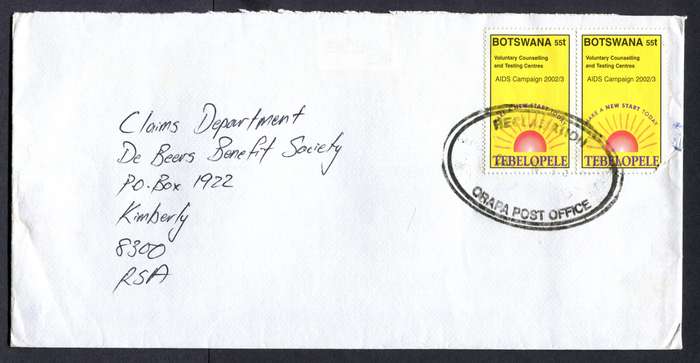 BOTSWANA 55t
Voluntary Counselling
and Testing Centres
AIDS Campaign 2002/3
TEBELOPELE
BOTSWANA 55t
Voluntary Counselling
and Testing Centres
AIDS Campaign 2002/3
TAKE A NEW START TODAY
TEBELOPELE
ORAPA POST OFFICE
Claims Department
De Beers Benefit Society
P.O. Box 1922
Kimberly
8300
RSA